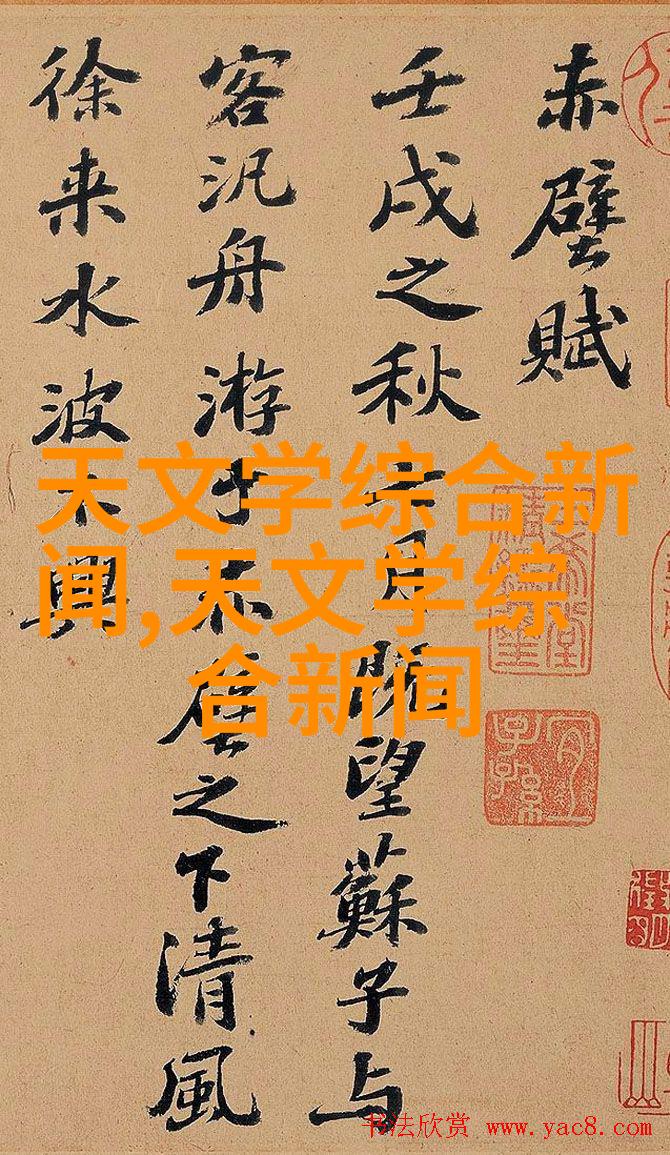 赤壁賦
壬戌之秋七月既望蘇子与
客汎舟游于赤壁之下清風
徐来水波不興
天文学综合新
闻,天文学综
合新闻
书法欣赏 www.yac8.com